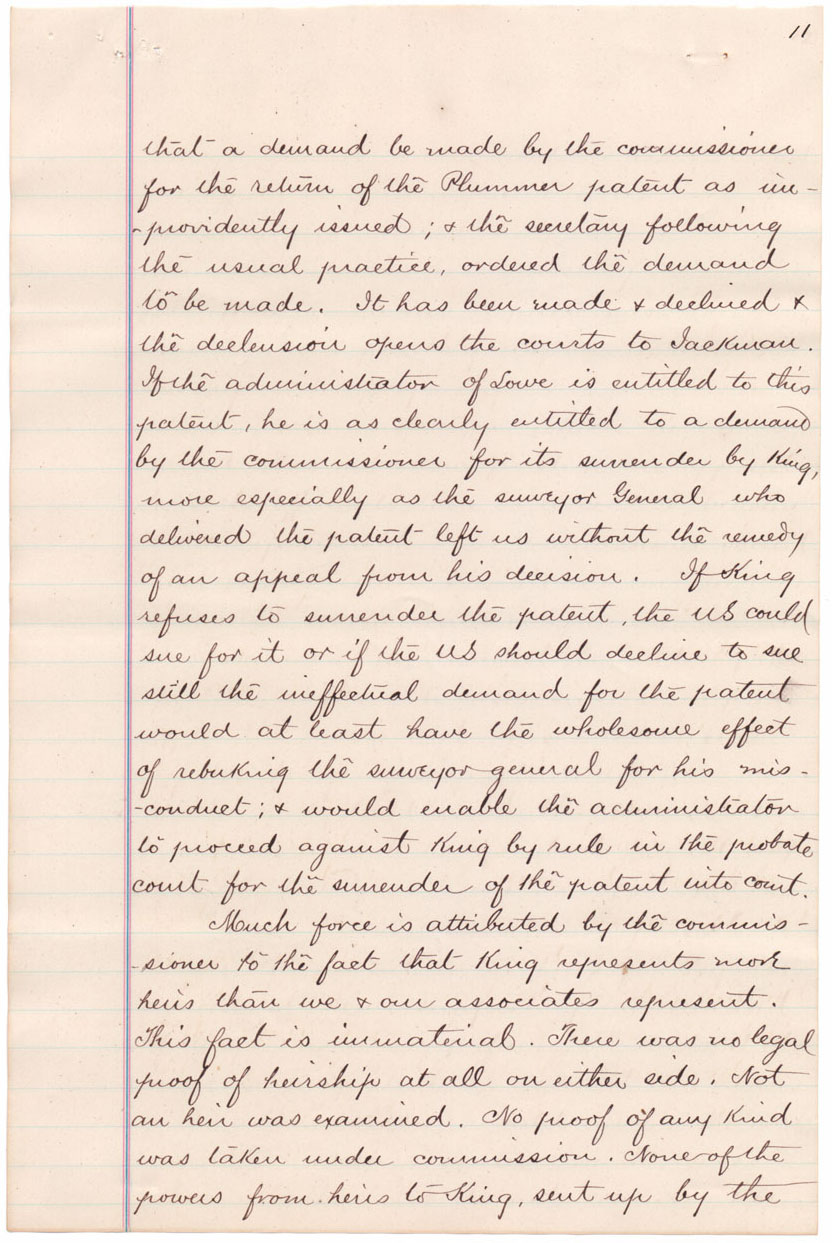 11
that a demand be made by the commissioner
for the return of the Plummer patent as im-
-providently issued ; & the secretary following
the usual practice, ordered the demand
to be made. It has been made & declined &
the declension opens the courts to Jackman.
If the administrator of Lowe is entitled to this
patent, he is as clearly entitled to a demand
by the commissioner for its surrender by King,
more especially as the surveyor General who
delivered the patent left us without the remedy
of an appeal from his decision. If King
refuses to surrender the patent, the US could
sue for it or if the US should decline to sue
still the ineffectual demand for the patent
would at least have the wholesome effect
of rebuking the surveyor general for his mis-
-conduct ; & would enable the administrator
to proceed against King by rule in the probate
court for the surrender of the patent into court.
Much force is attributed by the commis-
-sioner to the fact that King represents more
heirs than we & our associates represent.
This fact is immaterial. There was no legal
proof of heirship at all on either side. Not
an heir was examined. No proof of any kind
was taken under commission. None of the
powers from heirs to King, sent up by the